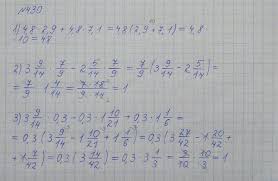 №430
1) 4,8 · 2,9 + 4,8 · 7,1 = 4,8 (2,9 + 7,1) = 4,8 ·
· 10 = 48
2) 3 9/14 · 7/9 - 2 5/14 · 7/9 = 7/9 (3 9/14 - 2 5/14) =
= 7/9 · 1 4/14 = 7 · 18 / 9 · 14 = 1
3) 3 9/14 · 0,3 - 0,3 · 1 10/21 + 0,3 · 1 1/6 =
= 0,3 (3 9/14 - 1 10/21 + 1 1/6) = 0,3 (3 27/42 - 1 20/42 +
+ 1 7/42) = 0,3 (3 14/42) = 0,3 · 3 1/3 = 3/10 · 10/3 = 1